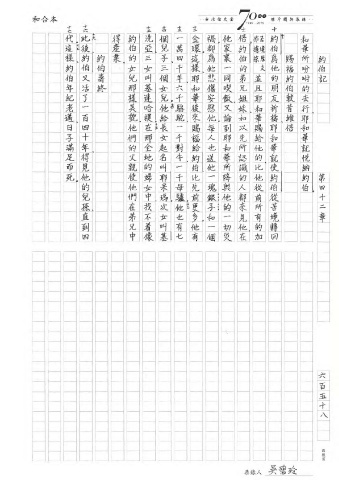 和合本
7000
約伯記
第四十二章
六百五十八
和華所吩咐的去行耶和華就悅納約伯
賜福約伯較昔維倍
十 約伯為他的朋友祈禱耶和華就使約伯從苦境轉回
並且耶和華賜給他的比他從前所有的加
倍約伯的弟兄姐妹和以先所認識的人都來見他在
他家裏一同喫飯又論到耶和華所降與他的一切災
禍都為他悲傷安慰他每人也送他一塊銀子和一個
金環這樣耶和華後來賜福給約伯比先前更多他有
一萬四千羊六千駱駝一千對牛一千母驢他也有七
個兒子三個女兒他給長女起名叫耶米瑪次女叫基
洗亞三女叫基連哈樸在那全地的婦女中找不着像
約伯的女兒那樣美貌他們的父親使他們在弟兄中
得產業
約伯壽終
此後約伯又活了一百四十年得見他的兒孫直到四
代這樣約伯年紀老邁日子滿足而死